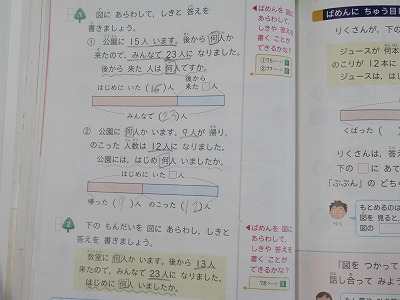 1 図に あらわして、しきと 答えを
書きましょう。
① 公園に 15人 います。後から 何人か
来たので、みんなで 23人に なりました。
後から 来た 人は 何人ですか。
はじめに いた (15)人
後から
来た □人
みんなで (23)人
② 公園に 何人か います。9人が 帰り、
のこった 人数は 12人に なりました。
公園には、はじめ 何人 いましたか。
はじめに いた □人
帰った (9)人 のこった (12)人
2 下の もんだいを 図に あらわし、しきと
答えを 書きましょう。
教室に 何人か います。後から 13人
来たので、みんなで 23人に なりました。
はじめに 何人 いましたか。
ばめんを 図に
あらわして、
しきや 答えを
書く ことが
できるかな?
①75ページ1
②77ページ2
ばめんを 図に
あらわして、
しきや 答えを
書く ことが
できるかな?
78ページ3
ばめんに ちゅう目し
りくさんが、下の
ジュースが 何本
のこりが 12本に
ジュースは、は
くばった
りくさんは、答え
下の □に あて
「ぶぶん」の どち
もとめるのは
図を 見ると、
図の
りく
「図を つかって
話し合って みよ